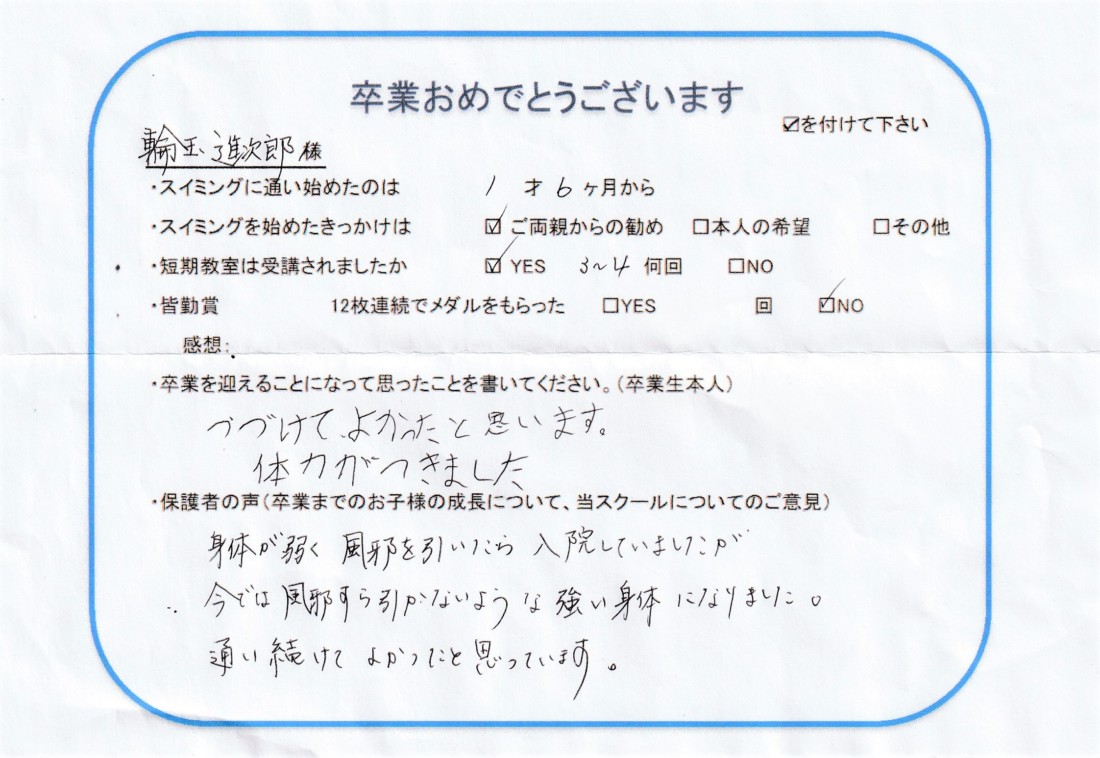 卒業おめでとうございます
☑を付けて下さい
輪玉 進次郎 様
・スイミングに通い始めたのは 1 才 6 ヶ月から
・スイミングを始めたきっかけは ☑ ご両親からの勧め □本人の希望 □その他
・短期教室は受講されましたか ☑ YES 3~4 何回 □NO
・皆勤賞 12枚連続でメダルをもらった □YES 回 ☑NO
感想:
・卒業を迎えることになって思ったことを書いてください。(卒業生本人)
つづけてよかったと思います。
体力がつきました
・保護者の声(卒業までのお子様の成長について、当スクールについてのご意見)
身体が弱く風邪を引いたら入院していましたが
今では風邪すら引かないような強い身体になりました。
通い続けてよかったと思っています。